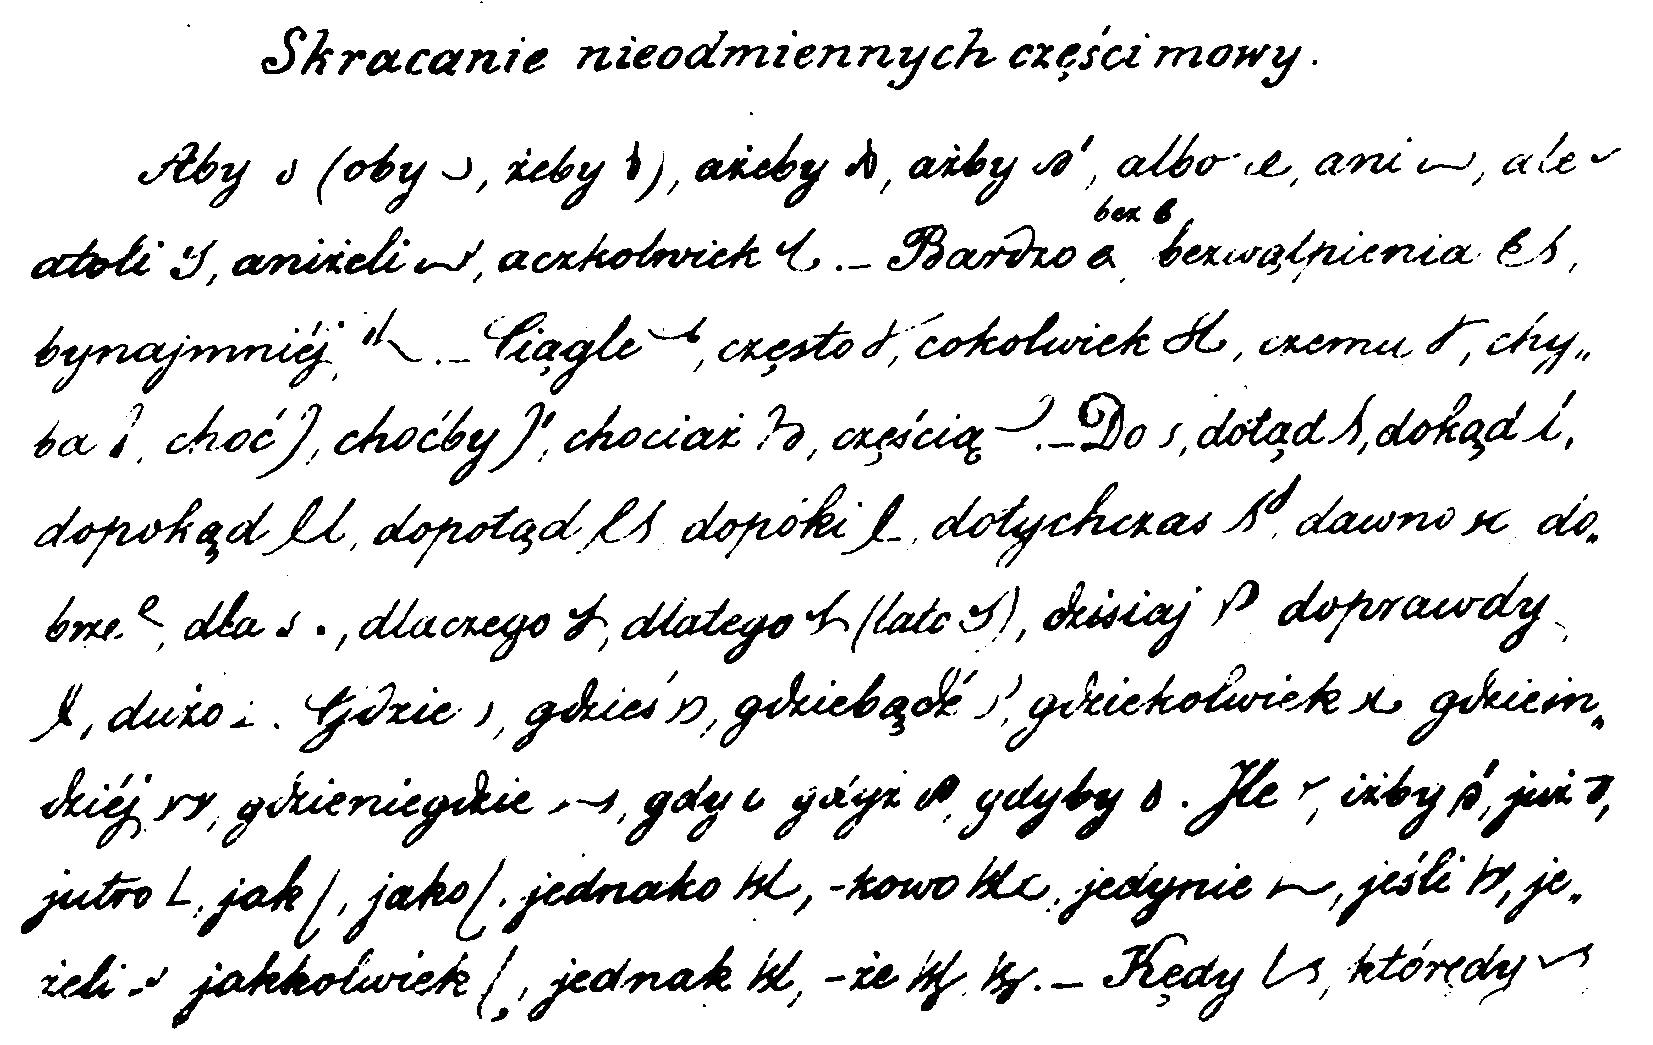 Skracanie nieodmiennych części mowy.
Aby (oby, żeby), ażeby, ażby, albo, ani, ale
bez
atoli, aniżeli, aczkolwiek. – Bardzo bezwątpienia,
bynajmniéj. – Ciągle, często, cokolwiek, czemu, chy„
ba, choć, choćby, chociaż, częścią. – Do, dotąd, dokąd,
dopokąd, dopotąd dopóki, dotychczas, dawno do„
brze, dla, dlaczego, dlatego (lato), dzisiaj doprawdy
, dużo. Gdzie, gdzieś, gdziebądź, gdziekolwiek gdziein„
dziéj, gdzieniegdzie, gdy gdyż, gdyby. Ile, iżby, już,
jutro, jak, jako, jednako, -kowo, jedynie, jeśli, je„
żeli jakkolwiek, jednak, -że. – Kędy, którędy